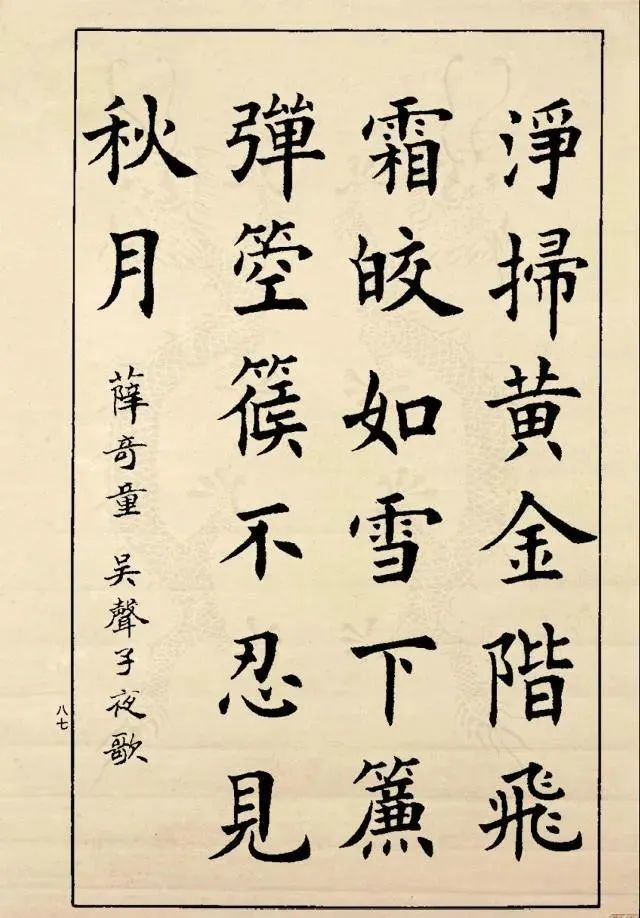 淨掃黃金階飛
霜皎如雪下簾
彈箜篌不忍見
秋月
薛奇童 吴聲子夜歌
八七